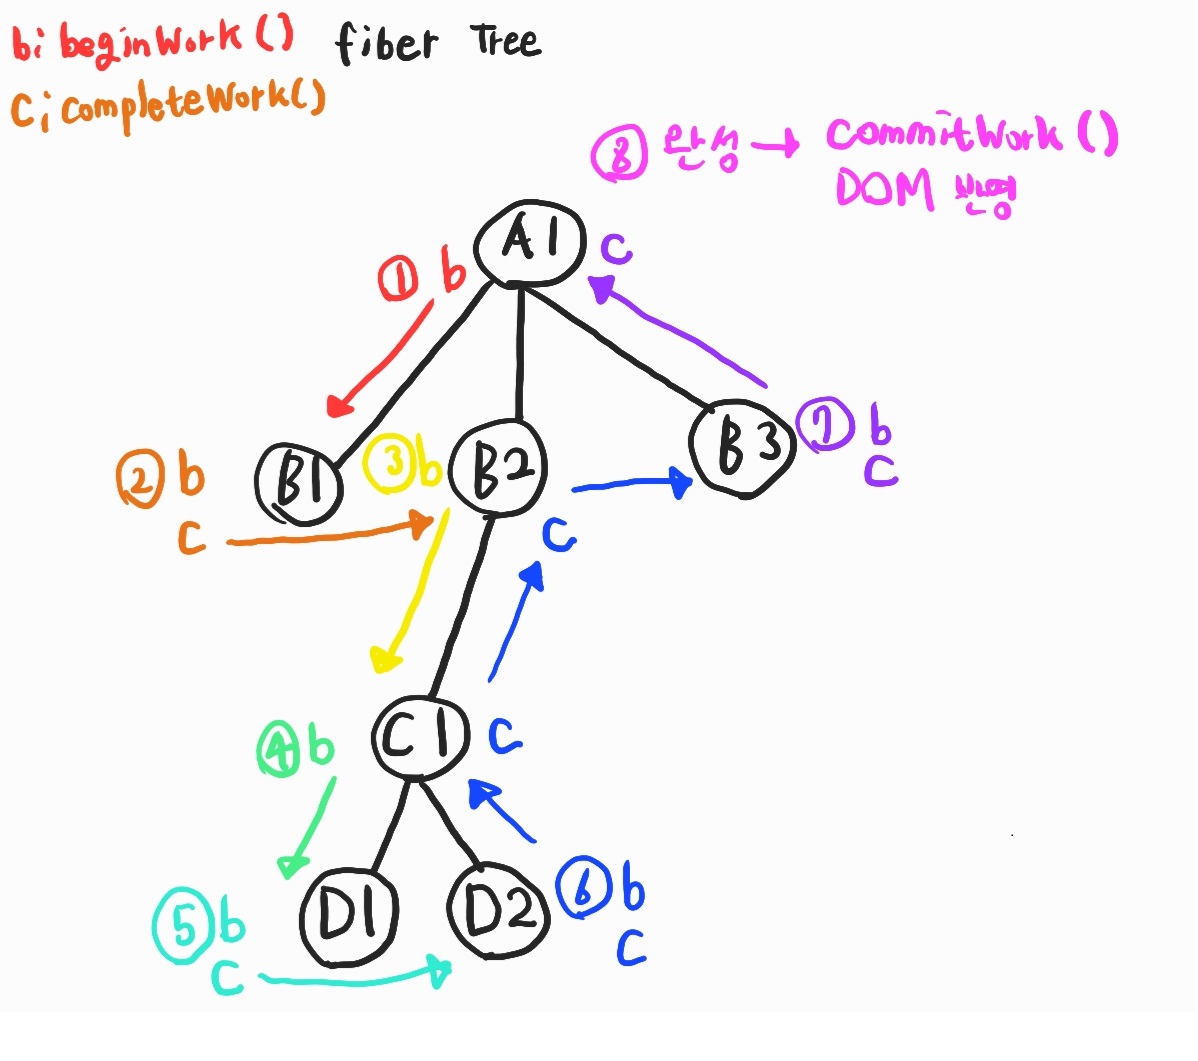 b; beginWork() fiber Tree
C; completeWork()
⑧ 완성 → commitWork()
DOM 반영
A1 c
① b
B1
② b
c
③ b
B2
c
B3
⑦ b
c
C1 c
④ b
D1
⑤ b
c
D2
⑥ b
c